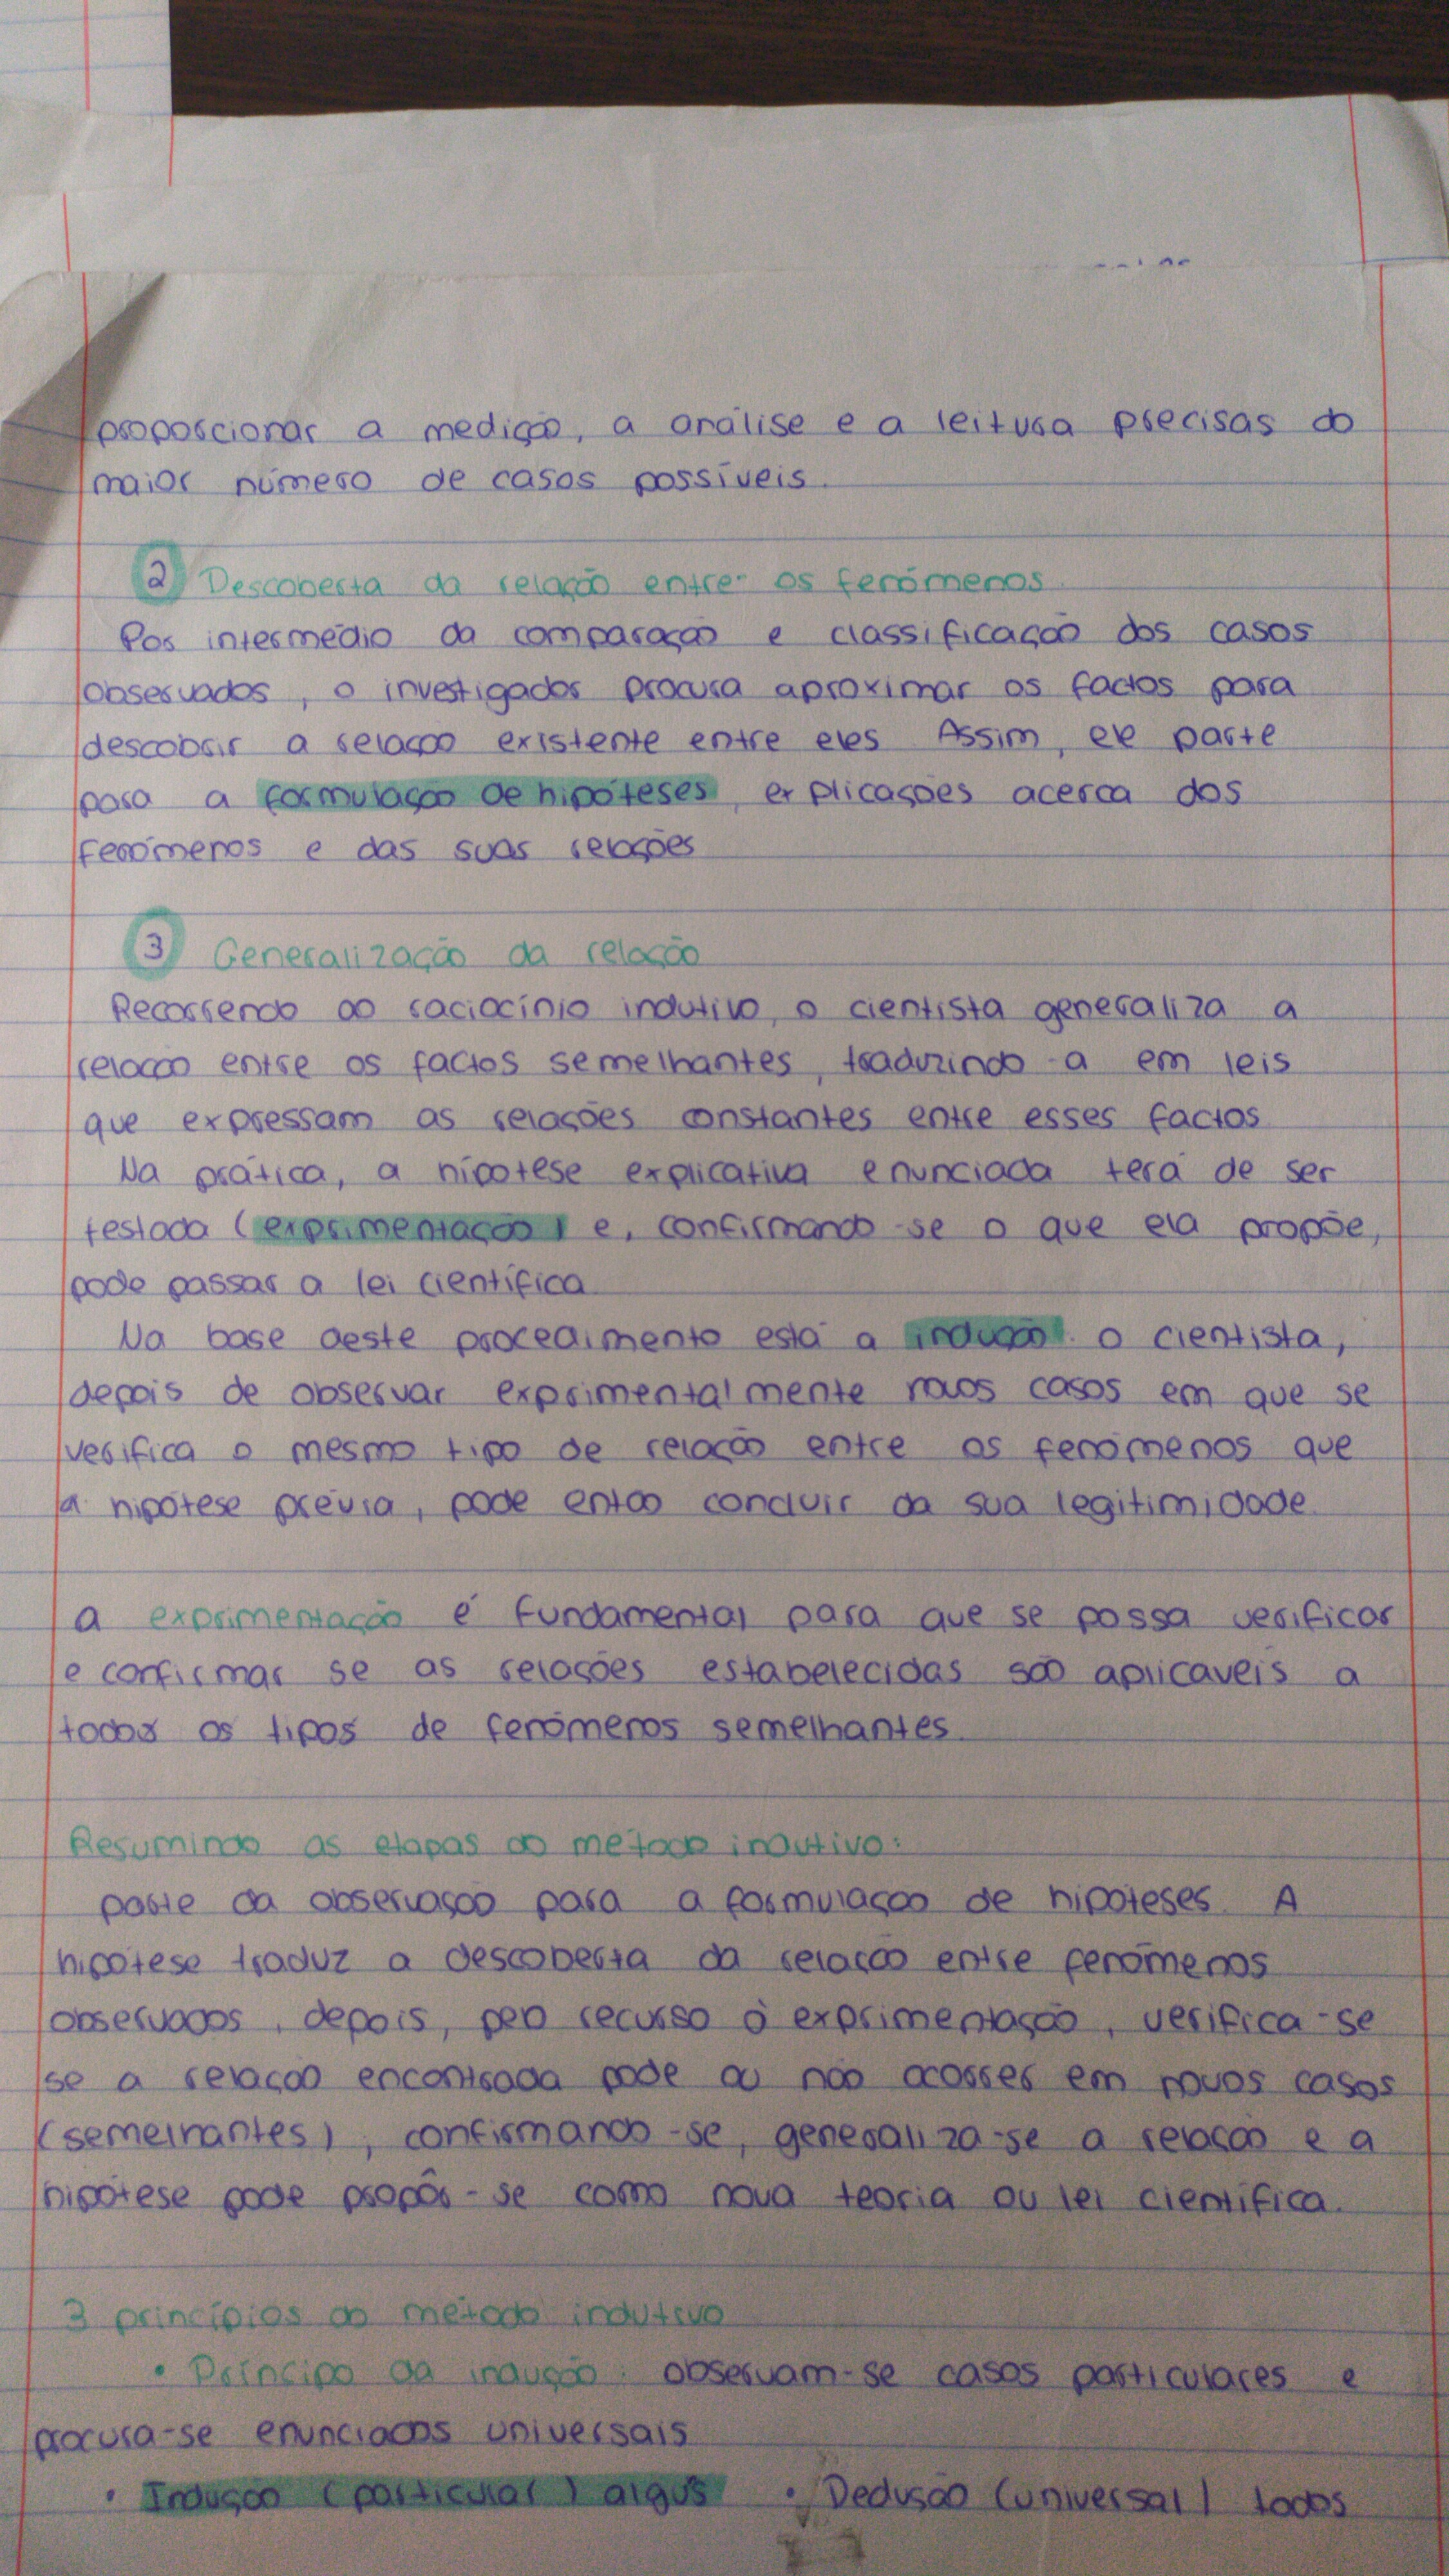 proporcionar a medição, a análise e a leitura precisas do
maior número de casos possíveis.
2 Descoberta da relação entre os fenómenos.
Por intermédio da comparação e classificação dos casos
observados, o investigador procura aproximar os factos para
descobrir a relação existente entre eles Assim, ele parte
para a formulação de hipóteses, explicações acerca dos
fenómenos e das suas relações
3 Generalização da relação
Recorrendo ao raciocínio indutivo, o cientista generaliza a
relação entre os factos semelhantes, traduzindo-a em leis
que expressam as relações constantes entre esses factos
Na prática, a hipótese explicativa enunciada terá de ser
testada (exprimentação) e, confirmando-se o que ela propõe,
pode passar a lei científica
Na base deste procedimento está a indução: o cientista,
depois de observar exprimentalmente novos casos em que se
verifica o mesmo tipo de relação entre os fenómenos que
a hipótese prévia, pode então concluir da sua legitimidade.
A exprimentação é fundamental para que se possa verificar
e confirmar se as relações estabelecidas são aplicaveis a
todos os tipos de fenómenos semelhantes.
Resumindo as etapas do método indutivo:
parte da observação para a formulação de hipóteses. A
hipótese traduz a descoberta da relação entre fenómenos
observados, depois, pelo recurso à exprimentação, verifica-se
se a relação encontrada pode ou não ocorrer em novos casos
(semelhantes), confirmando-se, generaliza-se a relação e a
hipótese pode propôr-se como nova teoria ou lei científica.
3 princípios do método indutivo
• Príncipo da indução: observam-se casos particulares e
procura-se enunciados universais
• Indução (particular) alguns • Dedução (universal) todos